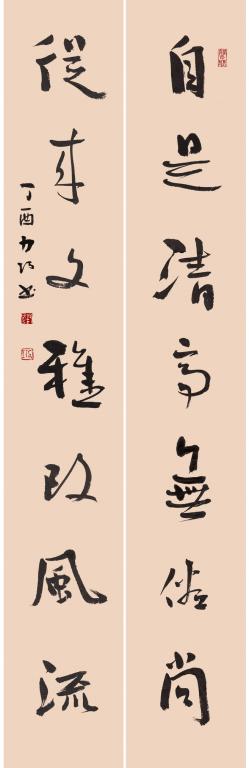 自是清高無俗尚
從来文雅改風流
丁酉